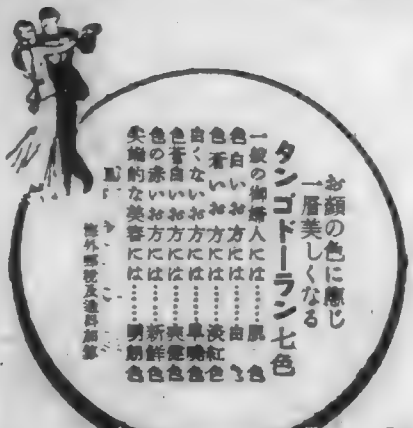 お顔の色に應じ
一層美しくなる
タンゴドーラン七色
一般の御婦人には……肌色
色白いお方には……白色
色蒼いお方には……淡紅色
白くないお方には……早曉色
色蒼白いお方には……爽健色
色の赤いお方には……新鮮色
尖端的な美容には……明朗色
海外郵税及送料加算